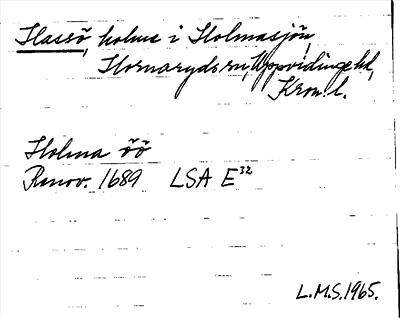 Hassö, holme i Holmasjön,
Hornaryds sn, Uppvidinge hd,
Kron. l.
Holma öö
Renov. 1689 LSA E³²
L.M.S. 1965.